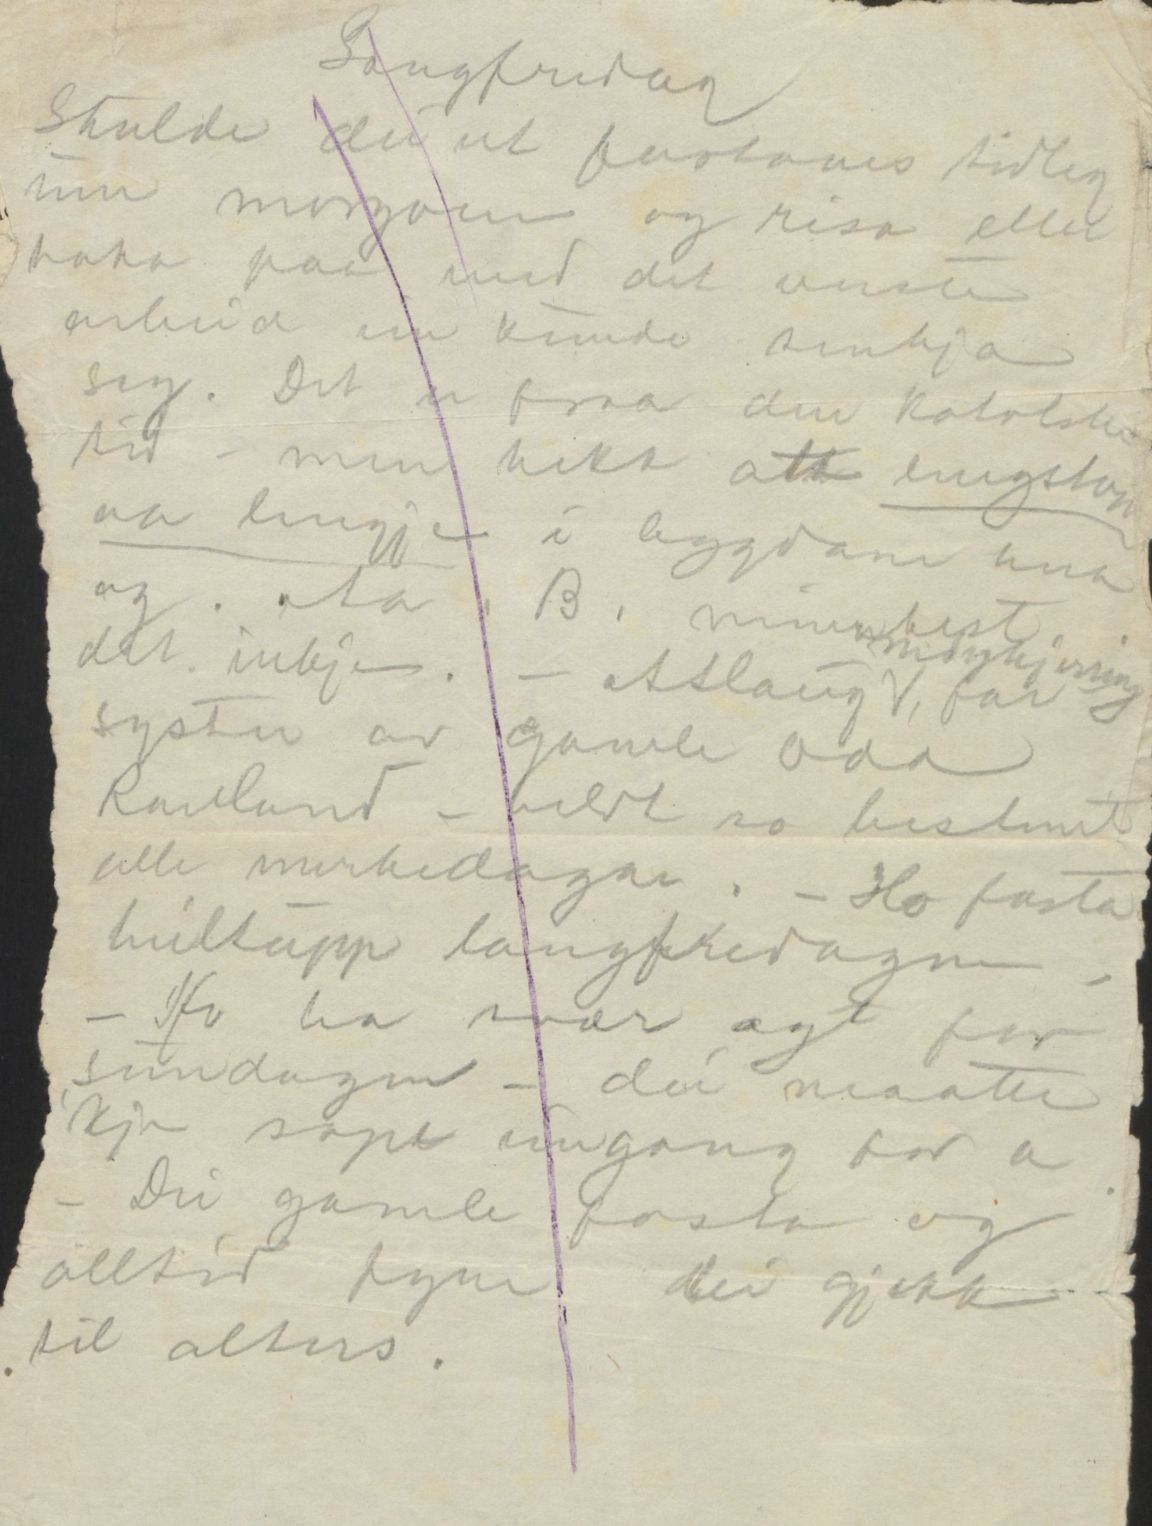 Langfredag
Skulde dei ut fastanes tidleg
um morgonen og risa eller
taka paa med det verste
arbeid ein kunde tenkja
seg. Det er fraa den katolske
tid – men hekk att lengst
aa lengje i bygdane
og . B.
det inkje. – Aslaug,
syster av gamle Odd
– heldt so bestemt
alle merkedagar. – Ho fasta
heiltupp langfredagen.
– Ho ha svær agt for
sundagen – dei maatte
kje sope eingong for a.
– Dei gamle fasta og
alltid fyrr dei gjekk
til alters.